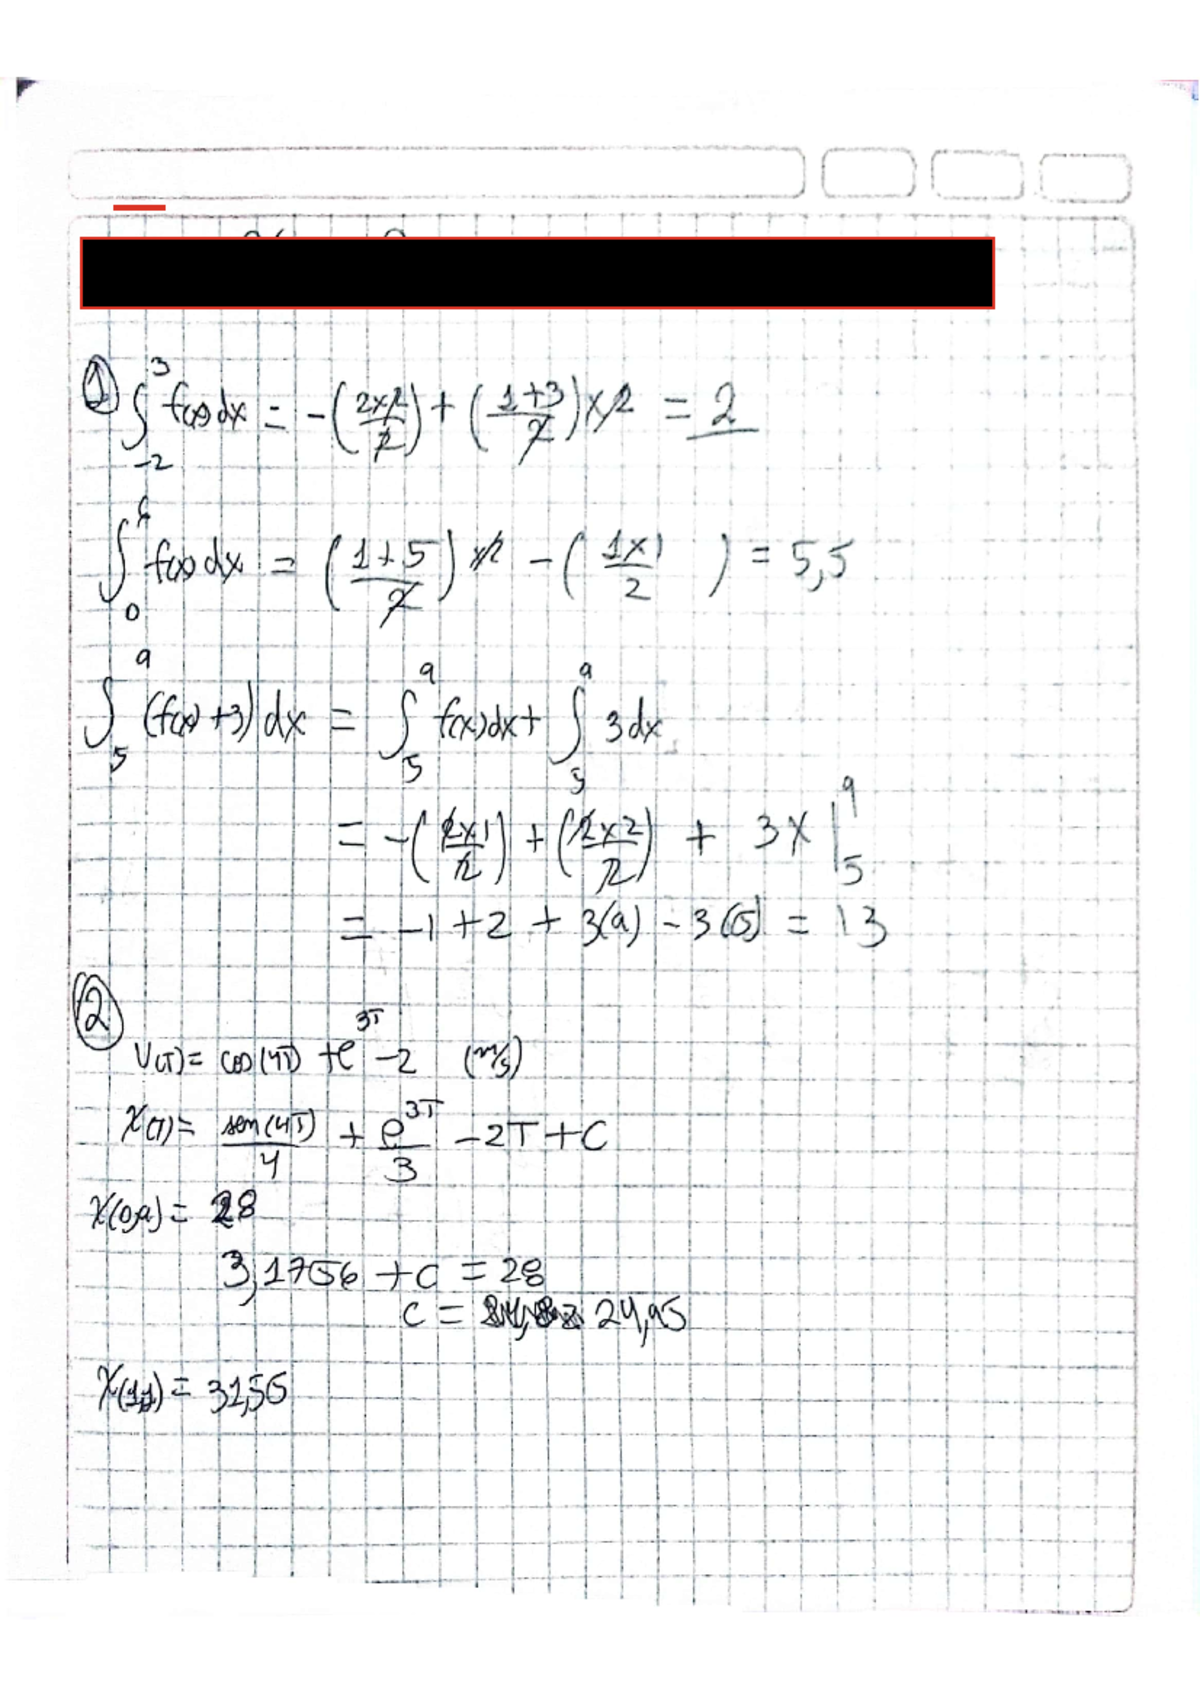 ① ∫₋₂³ f(x)dx = -(2x2/2) + (1+3/2)x2 = 2
∫₀⁶ f(x)dx = (1+5/2)x2 - (1x1/2) = 5,5
∫₅⁹ (f(x)+3)dx = ∫₅⁹ f(x)dx + ∫₅⁹ 3dx
= -(2x1/2) + (2x2/2) + 3x |₅⁹
= -1+2+3(9)-3(5) = 13
②
V(T)= cos(4T) + e^3T -2 (m/s)
X(T)= sen(4T)/4 + e^3T/3 -2T+C
X(0,9)= 28
3,1756 +C = 28
C = 24,95
X(1,1)= 31,56